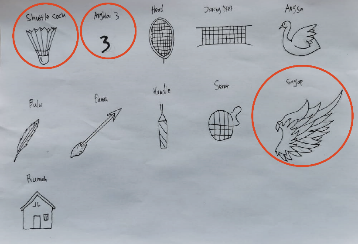 Shuttle Cock Angka 3 Head Jaring Net Angsa
Bulu Panah Handle Senar Sayap
Rumah